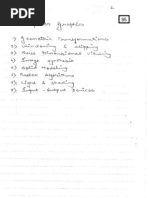 Computer Graphics
1) Geometric Transformations
2) Windowing & clipping
3) Three Dimensional Viewing
4) Image synthesis
5) Solid Modeling
6) Raster Algorithms
7) Light & shading
8) Input - Output Devices